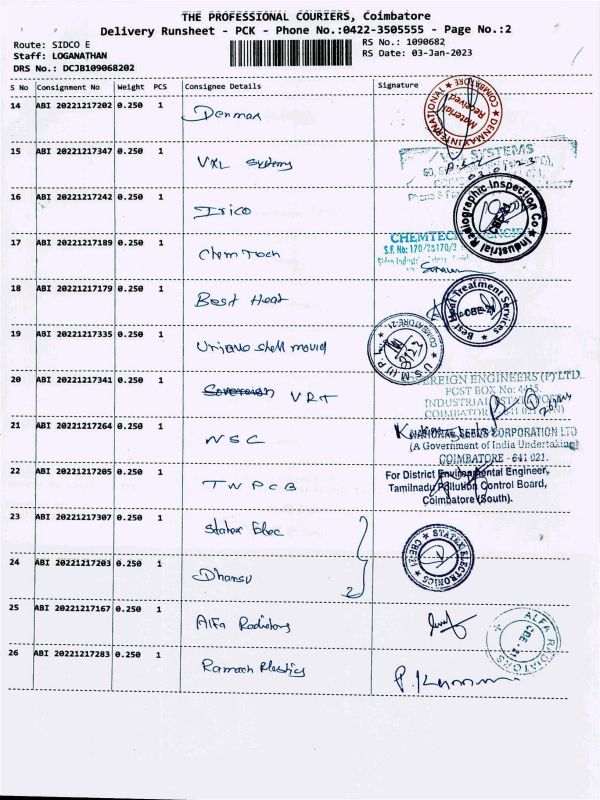 THE PROFESSIONAL COURIERS, Coimbatore
Delivery Runsheet - PCK - Phone No.:0422-3505555 - Page No.:2
Route: SIDCO E
RS No.: 1090682
Staff: LOGANATHAN
RS Date: 03-Jan-2023
DRS No.: DCJB109068202
S No Consignment No Weight PCS Consignee Details Signature
14 ABI 20221217202 0.250 1 Denmax
DENMAX INTERNATIONAL ★ COIMBATORE ★
Material
Received
15 ABI 20221217347 0.250 1 VXL Systems
SYSTEMS
03.01.23
16 ABI 20221217242 0.250 1 Irico
Industrial Radiographic Inspection Co ★
17 ABI 20221217189 0.250 1 Chem Tech
CHEMTEC
S.F. No: 170/2B170/3
18 ABI 20221217179 0.250 1 Best Heat
Best Heat Treatment Services ★
CBE-21
19 ABI 20221217335 0.250 1 Unique shell mould
U S M (I) P L ★ COIMBATORE-21 ★
20 ABI 20221217341 0.250 1 Sovereign VRT
EREIGN ENGINEERS (P) LTD.
POST BOX No: 4415,
INDUSTRIAL ESTATE POST
COIMBATORE 641 021
21 ABI 20221217264 0.250 1 NSC
NATIONAL SEEDS CORPORATION LTD
(A Government of India Undertaking)
COIMBATORE - 641 021.
22 ABI 20221217205 0.250 1 TNPCB
For District Environmental Engineer,
Tamilnadu Pollution Control Board,
Coimbatore (South).
23 ABI 20221217307 0.250 1 Statex Elec
STATEX ELECTRONICS ★ CBE-21 ★
24 ABI 20221217203 0.250 1 Dhansu
2
25 ABI 20221217167 0.250 1 Alfa Radiators
ALFA RADIATORS ★
CBE - 21
26 ABI 20221217283 0.250 1 Ramesh Plastics